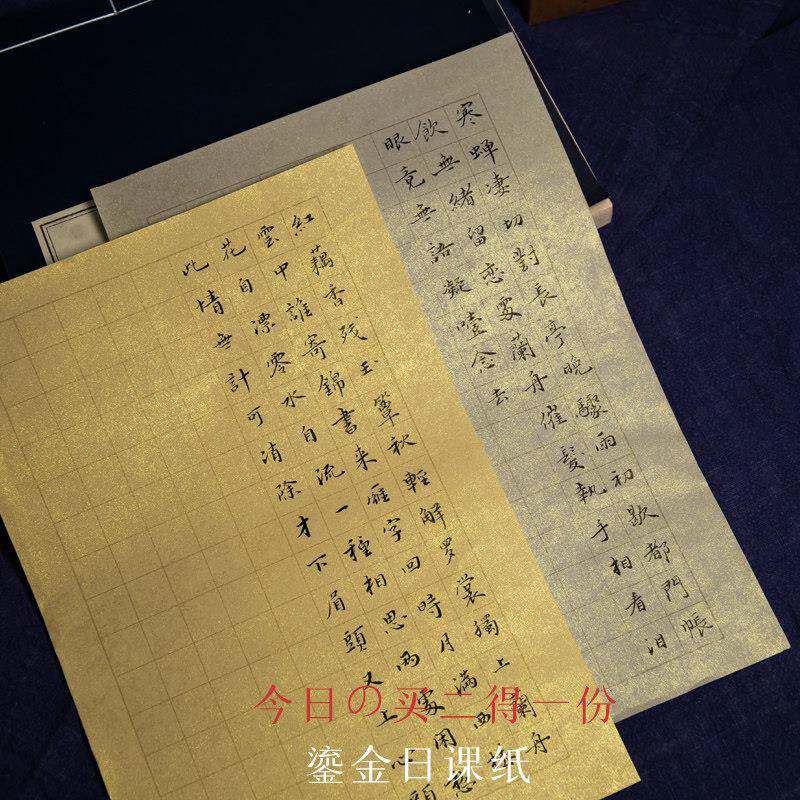 寒蟬凄切對長亭晚驟雨初歇都門帳
飲無緒留戀處蘭舟催髮執手相看泪
眼竟無語凝噎念去
紅藕香残玉簟秋輕解罗裳獨上蘭舟
雲中誰寄錦書来雁字回時月滿西
花自漂零水自流一種相思兩處閑愁
此情無計可消除才下眉頭又上心頭
今日の买二得一份
鎏金日课纸